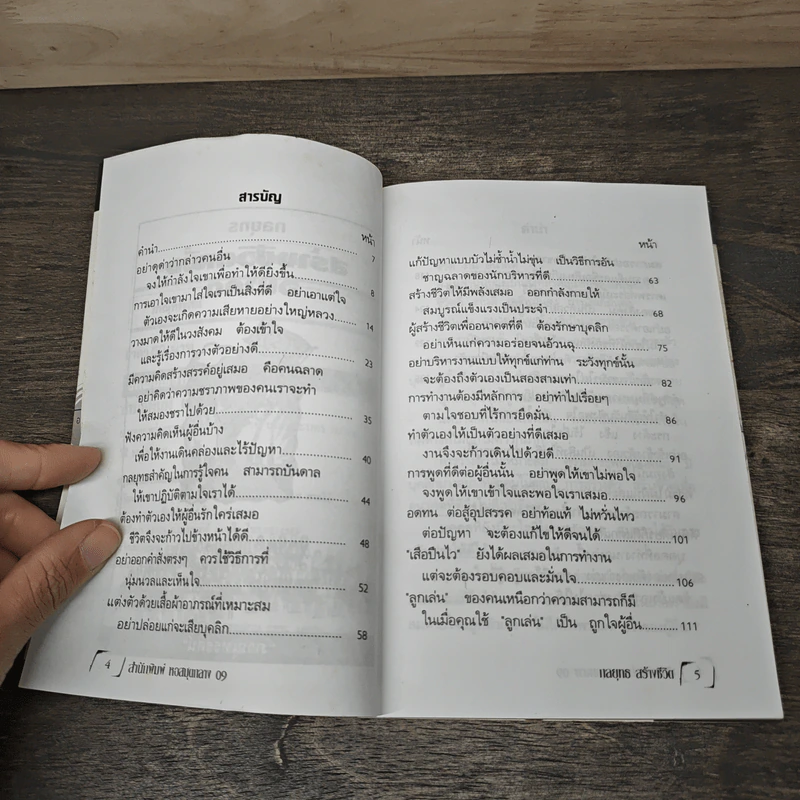 สารบัญ
หน้า
คำนำ 7
อย่าดุด่าว่ากล่าวคนอื่น
จงให้กำลังใจเขาเพื่อทำให้ดียิ่งขึ้น 8
การเอาใจเขามาใส่ใจเราเป็นสิ่งที่ดี อย่าเอาแต่ใจ
ตัวเองจะเกิดความเสียหายอย่างใหญ่หลวง 14
วางมาดให้ดีในวงสังคม ต้องเข้าใจ
และรู้เรื่องการวางตัวอย่างดี 23
มีความคิดสร้างสรรค์อยู่เสมอ คือคนฉลาด
อย่าคิดว่าความชราภาพของคนเราจะทำ
ให้สมองชราไปด้วย 35
ฟังความคิดเห็นผู้อื่นบ้าง
เพื่อให้งานเดินคล่องและไร้ปัญหา 40
กลยุทธสำคัญในการรู้ใจคน สามารถบันดาล
ให้เขาปฏิบัติตามใจเราได้ 44
ต้องทำตัวให้ผู้อื่นรักใคร่เสมอ
ชีวิตจึงจะก้าวไปข้างหน้าได้ดี 48
อย่าออกคำสั่งตรงๆ ควรใช้วิธีการที่
นุ่มนวลและเห็นใจ 52
แต่งตัวด้วยเสื้อผ้าอาภรณ์ที่เหมาะสม
อย่าปล่อยแก่จะเสียบุคลิก 58
4 สำนักพิมพ์ หอสมุดกลาง 09
หน้า
แก้ปัญหาแบบบัวไม่ช้ำน้ำไม่ขุ่น เป็นวิธีการอัน
ชาญฉลาดของนักบริหารที่ดี 63
สร้างชีวิตให้มีพลังเสมอ ออกกำลังกายให้
สมบูรณ์แข็งแรงเป็นประจำ 68
ผู้สร้างชีวิตเพื่ออนาคตที่ดี ต้องรักษาบุคลิก
อย่าเห็นแก่ความอร่อยจนอ้วนฉุ 75
อย่าบริหารงานแบบให้ทุกข์แก่ท่าน ระวังทุกข์นั้น
จะต้องถึงตัวเองเป็นสองสามเท่า 82
การทำงานต้องมีหลักการ อย่าทำไปเรื่อยๆ
ตามใจชอบที่ไร้การยึดมั่น 86
ทำตัวให้เป็นตัวอย่างที่ดีเสมอ
งานจึงจะก้าวเดินไปด้วยดี 91
การพูดที่ดีต่อผู้อื่นนั้น อย่าพูดให้เขาไม่พอใจ
จงพูดให้เขาเข้าใจและพอใจเราเสมอ 96
อดทน ต่อสู้อุปสรรค อย่าท้อแท้ ไม่หวั่นไหว
ต่อปัญหา จะต้องแก้ไขให้ดีจนได้ 101
"เสือปืนไว" ยังได้ผลเสมอในการทำงาน
แต่จะต้องรอบคอบและมั่นใจ 106
"ลูกเล่น" ของคนเหนือกว่าความสามารถก็มี
ในเมื่อคุณใช้ "ลูกเล่น" เป็น ถูกใจผู้อื่น 111
กลยุทธ สร้างชีวิต 5